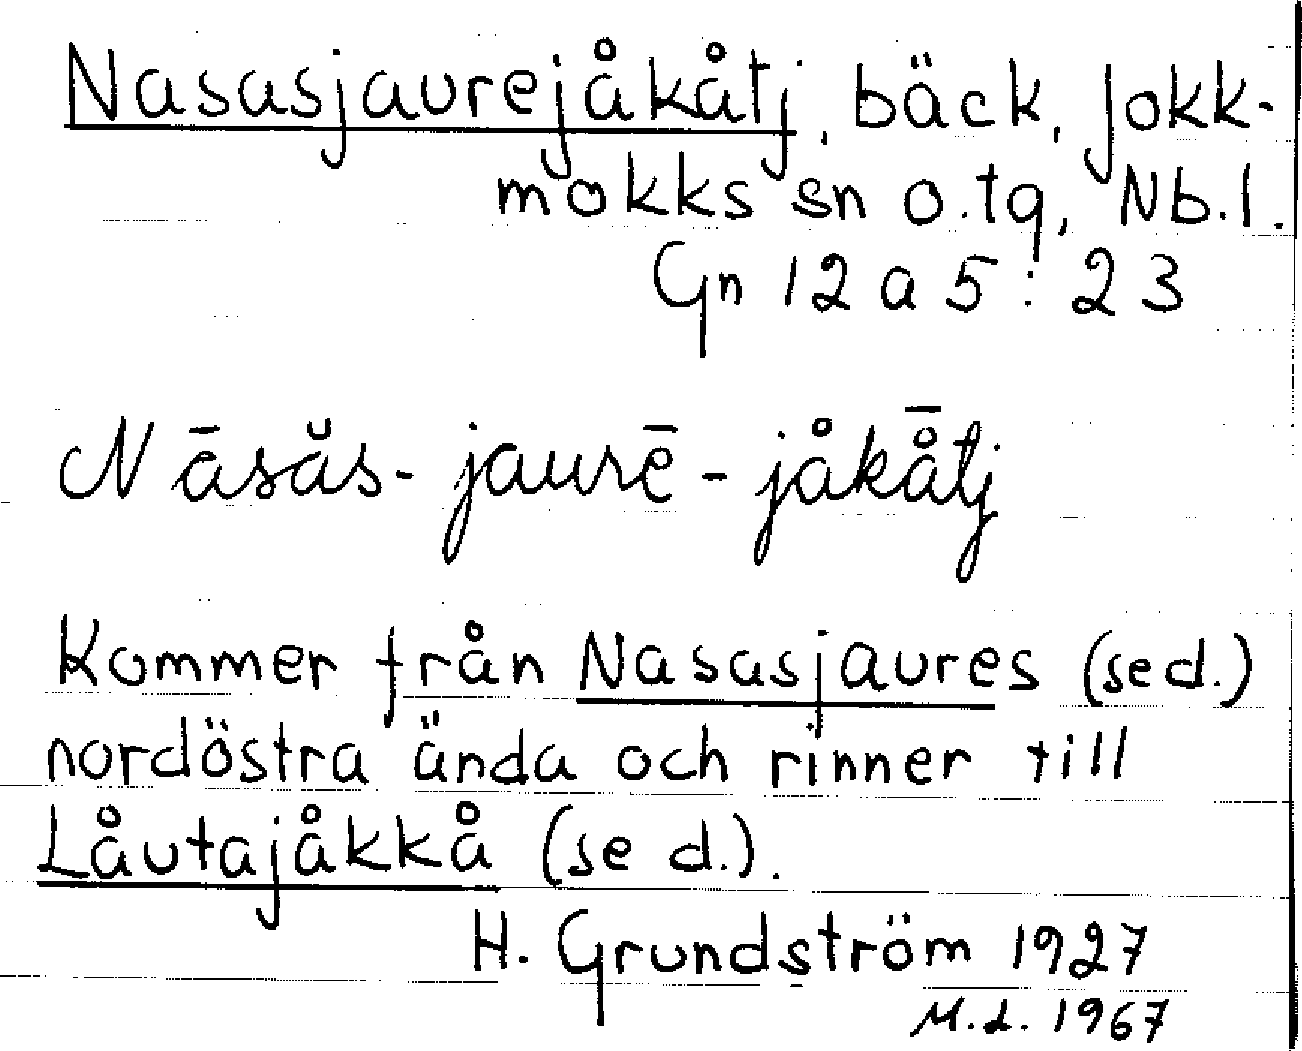 Nasasjaurejåkåtj, bäck, Jokk-
mokks sn o. tg, Nb.l.
Gn 12 a 5 : 23
Nāsăs-jaurē-jåkå̄tj
Kommer från Nasasjaures (se d.)
nordöstra ända och rinner till
Låutajåkkå (se d.).
H. Grundström 1927
M.L. 1967